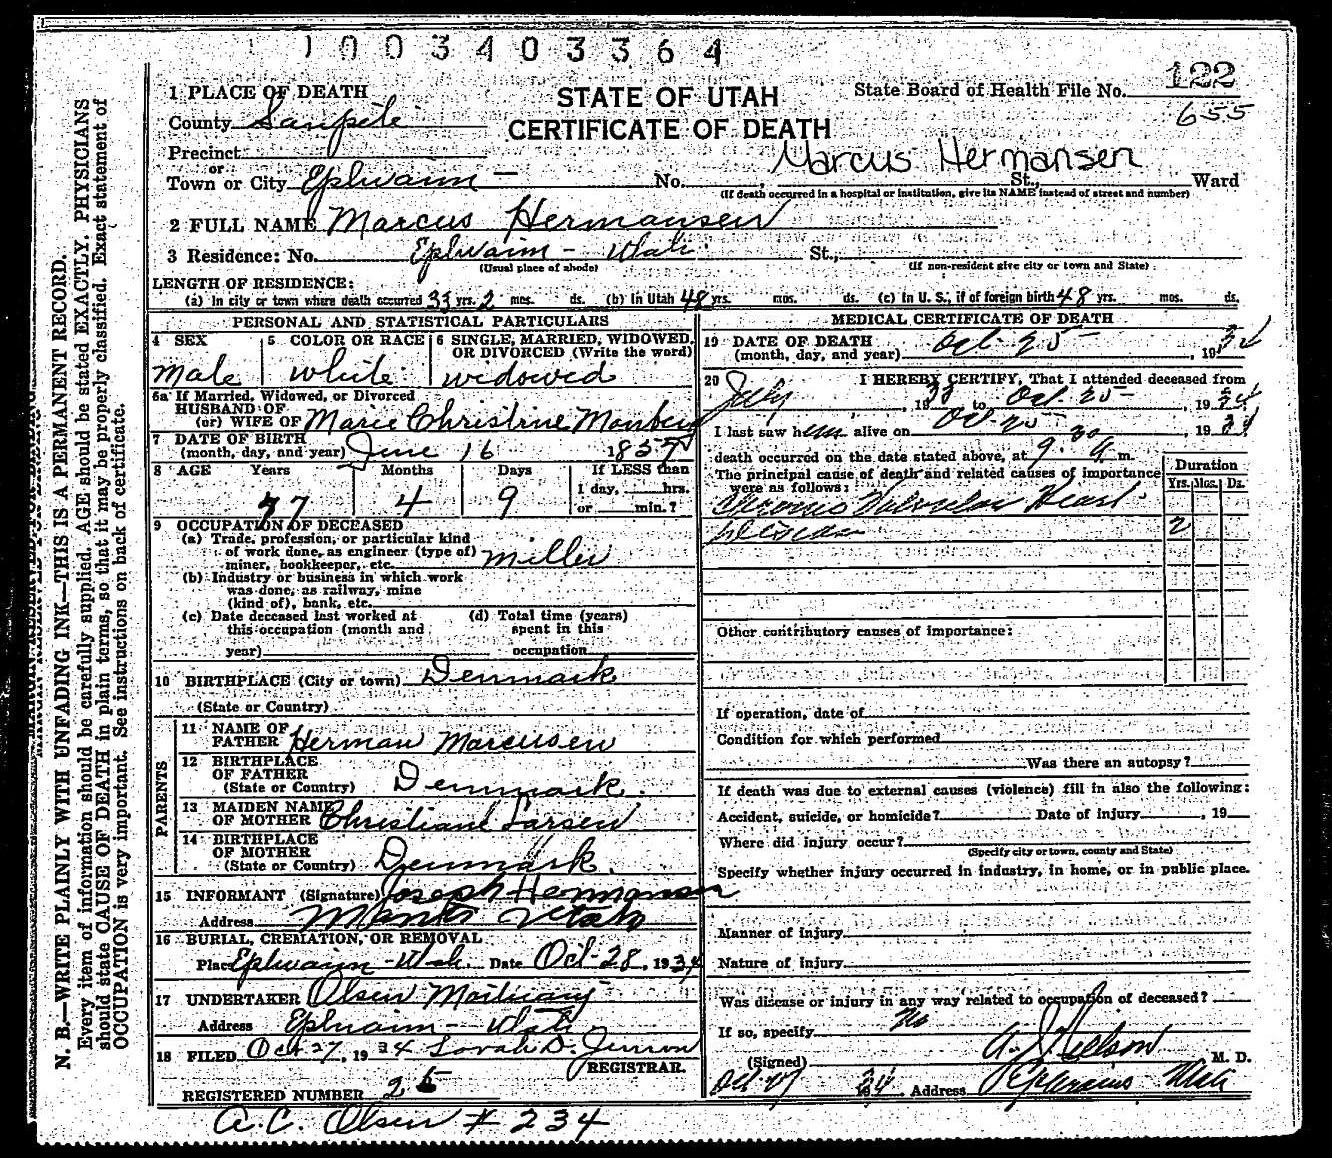 1003403364
1 PLACE OF DEATH
STATE OF UTAH
CERTIFICATE OF DEATH
State Board of Health File No. 122
655
County Sanpete
Precinct
or
Town or City Ephraim — No. , St., Ward
Marcus Hermansen
(If death occurred in a hospital or institution, give its NAME instead of street and number)
2 FULL NAME Marcus Hermansen
3 Residence: No. Ephraim - Utah St.,
(Usual place of abode) (If non-resident give city or town and State)
LENGTH OF RESIDENCE:
(a) In city or town where death occurred 33 yrs. 2 mos. ds. (b) In Utah 48 yrs. mos. ds. (c) In U. S., if of foreign birth 48 yrs. mos. ds.
PERSONAL AND STATISTICAL PARTICULARS
4 SEX 5 COLOR OR RACE 6 SINGLE, MARRIED, WIDOWED,
OR DIVORCED (Write the word)
Male white widowed
6a If Married, Widowed, or Divorced
HUSBAND OF
(or) WIFE OF Marie Christine
7 DATE OF BIRTH
(month, day, and year) June 16 1857
8 AGE Years Months Days If LESS than
1 day, hrs.
or min.?
77 4 9
9 OCCUPATION OF DECEASED
(a) Trade, profession, or particular kind
of work done, as engineer (type of)
miner, bookkeeper, etc. miller
(b) Industry or business in which work
was done, as railway, mine
(kind of), bank, etc.
(c) Date deceased last worked at (d) Total time (years)
this occupation (month and spent in this
year) occupation
10 BIRTHPLACE (City or town) Denmark
(State or Country)
PARENTS
11 NAME OF
FATHER Herman Marcusen
12 BIRTHPLACE
OF FATHER
(State or Country) Denmark.
13 MAIDEN NAME
OF MOTHER Christiane Larsen
14 BIRTHPLACE
OF MOTHER
(State or Country) Denmark.
15 INFORMANT (Signature) Joseph Hermansen
Address Manti Utah
16 BURIAL, CREMATION, OR REMOVAL
Place Ephraim - Utah. Date Oct-28, 1934
17 UNDERTAKER Olsen Mortuary
Address Ephraim - Utah
18 FILED Oct 27, 1934 Sarah D. Jenson
REGISTRAR.
REGISTERED NUMBER 25
A.C. Olsen # 234
MEDICAL CERTIFICATE OF DEATH
19 DATE OF DEATH
(month, day, and year) Oct-25-, 1934
20 I HEREBY CERTIFY, That I attended deceased from
July, 1933 to Oct. 25-, 1934
I last saw him alive on Oct-25, 1934
death occurred on the date stated above, at 9.30 a m.
The principal cause of death and related causes of importance
were as follows:
Duration
Yrs. Mos. Ds.
Chronic Valvular Heart
disease 2
Other contributory causes of importance:
If operation, date of
Condition for which performed
Was there an autopsy?
If death was due to external causes (violence) fill in also the following:
Accident, suicide, or homicide? Date of injury , 19
Where did injury occur?
(Specify city or town, county and State)
Specify whether injury occurred in industry, in home, or in public place.
Manner of injury
Nature of injury
Was disease or injury in any way related to occupation of deceased?
If so, specify No
(Signed) A. J. Nielson M. D.
Oct-27 34 Address Ephraim - Utah
N. B.—WRITE PLAINLY WITH UNFADING INK—THIS IS A PERMANENT RECORD.
Every item of information should be carefully supplied. AGE should be stated EXACTLY. PHYSICIANS
should state CAUSE OF DEATH in plain terms, so that it may be properly classified. Exact statement of
OCCUPATION is very important. See instructions on back of certificate.